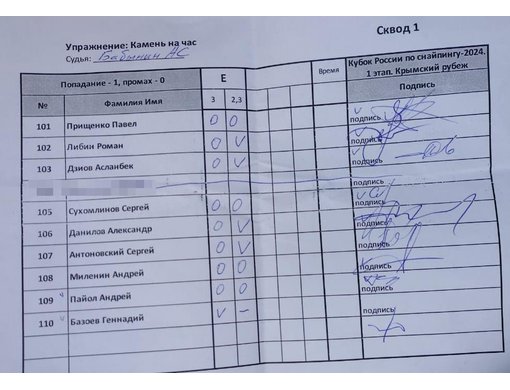 Сквод 1
Упражнение: Камень на час
Судья: Бабынин АС
Попадание - 1, промах - 0 Е Время Кубок России по снайпингу-2024. 1 этап. Крымский рубеж
№ Фамилия Имя 3 2,3 Подпись
101 Прищенко Павел 0 0 подпись
102 Либин Роман 0 V подпись
103 Дзиов Асланбек 0 V подпись
подпись
105 Сухомлинов Сергей 0 0 подпись
106 Данилов Александр 0 V подпись
107 Антоновский Сергей 0 V подпись
108 Миленин Андрей 0 0 подпись
109 V Пайол Андрей 0 0 подпись
110 V Базоев Геннадий V – подпись